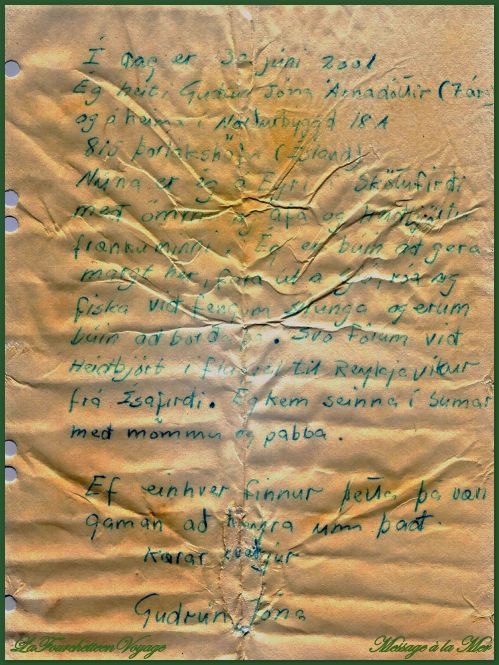 Í Dag er 30 júní 2001
Eg heiti Gudrun Jóna Arnadóttir (7 ára)
og á heima í Nordurbyggd 18A
815 þorlakshöfn (Island)
Núna er ég á Eyri í Skötufirdi
med ömmu og afa og Heidbjörtu
frænku minni. Ég er búin ad gera
margt hér, fara út á sjó, róa og
fiska við fengum þunga og erum
búin ad borda. Svo fórum vid
Heidbjört í flugvél til Reykjavikur
frá Isafirdi. Eg kem seinna í sumar
med mömmu og pabba.
Ef einhver finnur þetta þá væri
gaman ad heyra um það.
Kærar kvedjur
Gudrun Jóna
LaFourchetteenVoyage
Message à la Mer